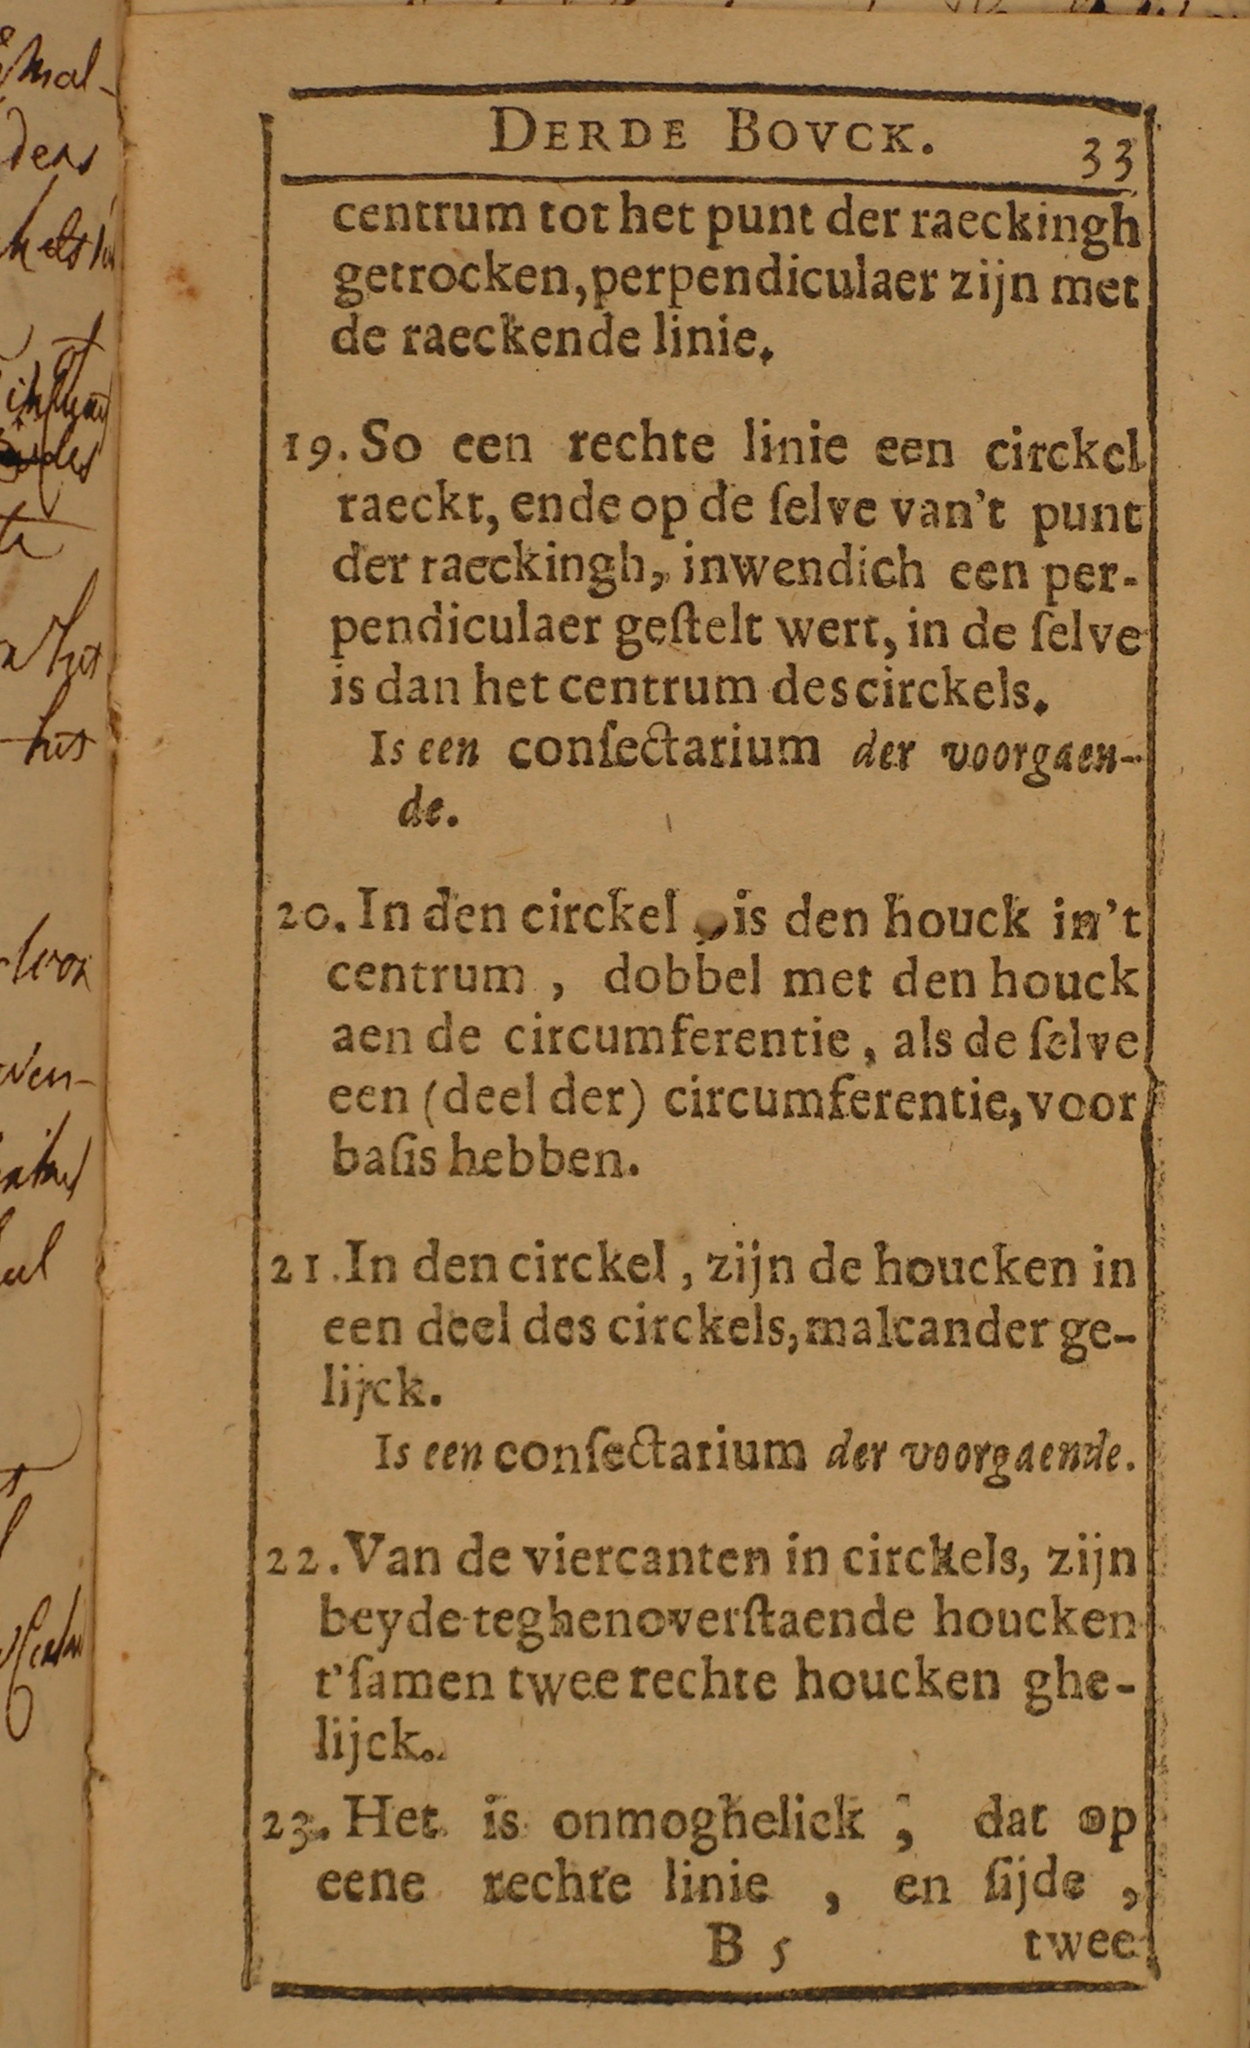 DERDE BOVCK. 33
centrum tot het punt der raeckingh
getrocken, perpendiculaer zijn met
de raeckende linie.
19. So een rechte linie een circkel
raeckt, ende op de ſelve van't punt
der raeckingh, inwendich een per-
pendiculaer geſtelt wert, in de ſelve
is dan het centrum des circkels.
Is een conſectarium der voorgaen-
de.
20. In den circkel, is den houck in't
centrum, dobbel met den houck
aen de circumferentie, als de ſelve
een (deel der) circumferentie, voor
baſis hebben.
21. In den circkel, zijn de houcken in
een deel des circkels, malcander ge-
lijck.
Is een conſectarium der voorgaende.
22. Van de viercanten in circkels, zijn
beyde teghenoverſtaende houcken
t'ſamen twee rechte houcken ghe-
lijck.
23. Het is onmoghelick, dat op
eene rechte linie, en ſijde,
B 5 twee